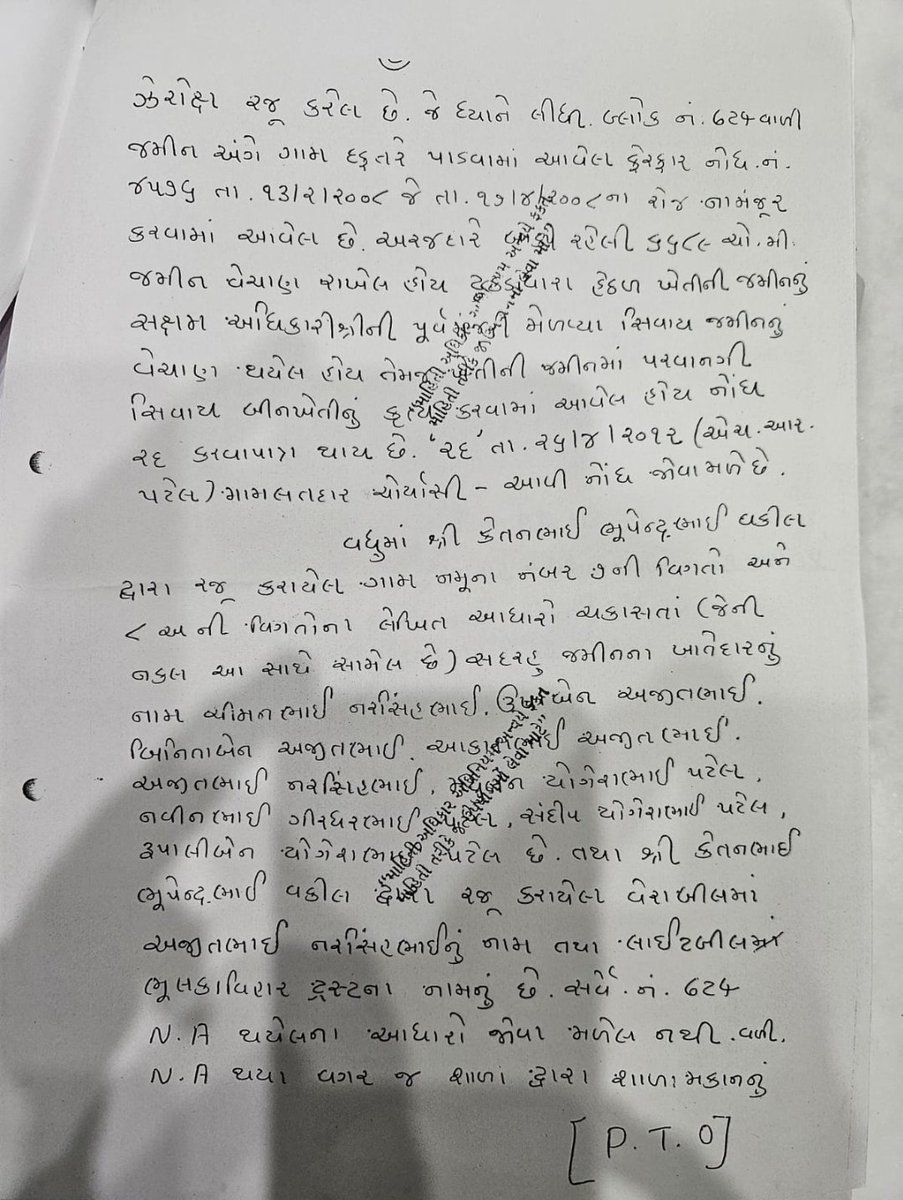 ઝેરોક્ષ રજૂ કરેલ છે. જે ધ્યાને લીધી. બ્લોક નં. ૬૨૪ વાળી
જમીન અંગે ગામ દફતરે પાડવામાં આવેલ ફેરફાર નોંધ નં.
તા. ૧૩/૨/૨૦૦૮ જે તા. ૧૭/૪/૨૦૦૮ના રોજ નામંજૂર
કરવામાં આવેલ છે. અરજદારે રહેલી ચો.મી.
જમીન વેચાણ રાખેલ હોય હેઠળ ખેતીની જમીનનું
સક્ષમ અધિકારીશ્રીની પૂર્વ મેળવ્યા સિવાય જમીનનું
વેચાણ થયેલ હોય તેમજ ખેતીની જમીનમાં પરવાનગી
સિવાય બીનખેતીનું કૃત્ય કરવામાં આવેલ હોય નોંધ
રદ કરવાપાત્ર થાય છે. 'રદ' તા. ૨૫/૪/૨૦૧૨ (એચ.આર.
પટેલ) મામલતદાર ચોર્યાસી - આવી નોંધ જોવા મળે છે.
વધુમાં શ્રી કેતનભાઈ ભૂપેન્દ્રભાઈ વકીલ
દ્વારા રજૂ કરાયેલ ગામ નમૂના નંબર ૭ની વિગતો અને
૮ અ ની વિગતોના લેખિત આધારો ચકાસતાં (જેની
નકલ આ સાથે સામેલ છે) સદરહુ જમીનના ખાતેદારનું
નામ ચીમનભાઈ નરસિંહભાઈ, અજીતભાઈ.
બિનિતાબેન અજીતભાઈ. અજીતભાઈ.
અજીતભાઈ નરસિંહભાઈ, યોગેશભાઈ પટેલ,
નવીનભાઈ ગીરધરભાઈ પટેલ, સંદીપ યોગેશભાઈ પટેલ,
રૂપાલીબેન યોગેશભાઈ પટેલ છે. તથા શ્રી કેતનભાઈ
ભૂપેન્દ્રભાઈ વકીલ દ્વારા રજૂ કરાયેલ વેરાબીલમાં
અજીતભાઈ નરસિંહભાઈનું નામ તથા લાઈટબીલમાં
ભૂલકાવિહાર ટ્રસ્ટના નામનું છે. સર્વે. નં. ૬૨૪
N.A થયેલના આધારો જોવા મળેલ નથી. વળી.
N.A થયા વગર જ શાળા દ્વારા શાળા મકાનનું
[P.T.O]